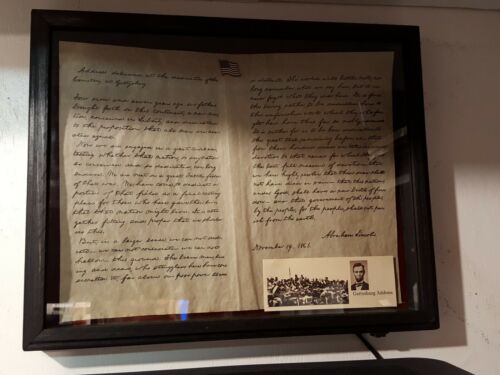 Address delivered at the dedication of the
Cemetery at Gettysburg.
Four score and seven years ago our fathers
brought forth on this continent, a new na-
tion, conceived in Liberty, and dedicated
to the proposition that all men are cre-
ated equal.
Now we are engaged in a great civil war,
testing whether that nation, or any nation
so conceived and so dedicated, can long
endure. We are met on a great battle-field
of that war. We have come to dedicate a
portion of that field, as a final resting
place for those who here gave their lives
that that nation might live. It is alto-
gether fitting and proper that we should
do this.
But, in a larger sense, we can not dedi-
cate we can not consecrate we can not
hallow this ground. The brave men, liv-
ing and dead, who struggled here, have con-
secrated it, far above our poor power to add
or detract. The world will little note, nor
long remember what we say here, but it can
never forget what they did here. It is for us
the living, rather, to be dedicated here to
the unfinished work which they who fou-
ght here have thus far so nobly advanced.
It is rather for us to be here dedicated to
the great task remaining before us that
from these honored dead we take increased
devotion to that cause for which they gave
the last full measure of devotion that
we here highly resolve that these dead shall
not have died in vain that this nation,
under God, shall have a new birth of free-
dom and that government of the people,
by the people, for the people, shall not per-
ish from the earth.
Abraham Lincoln.
November 19, 1863.
Gettysburg Address